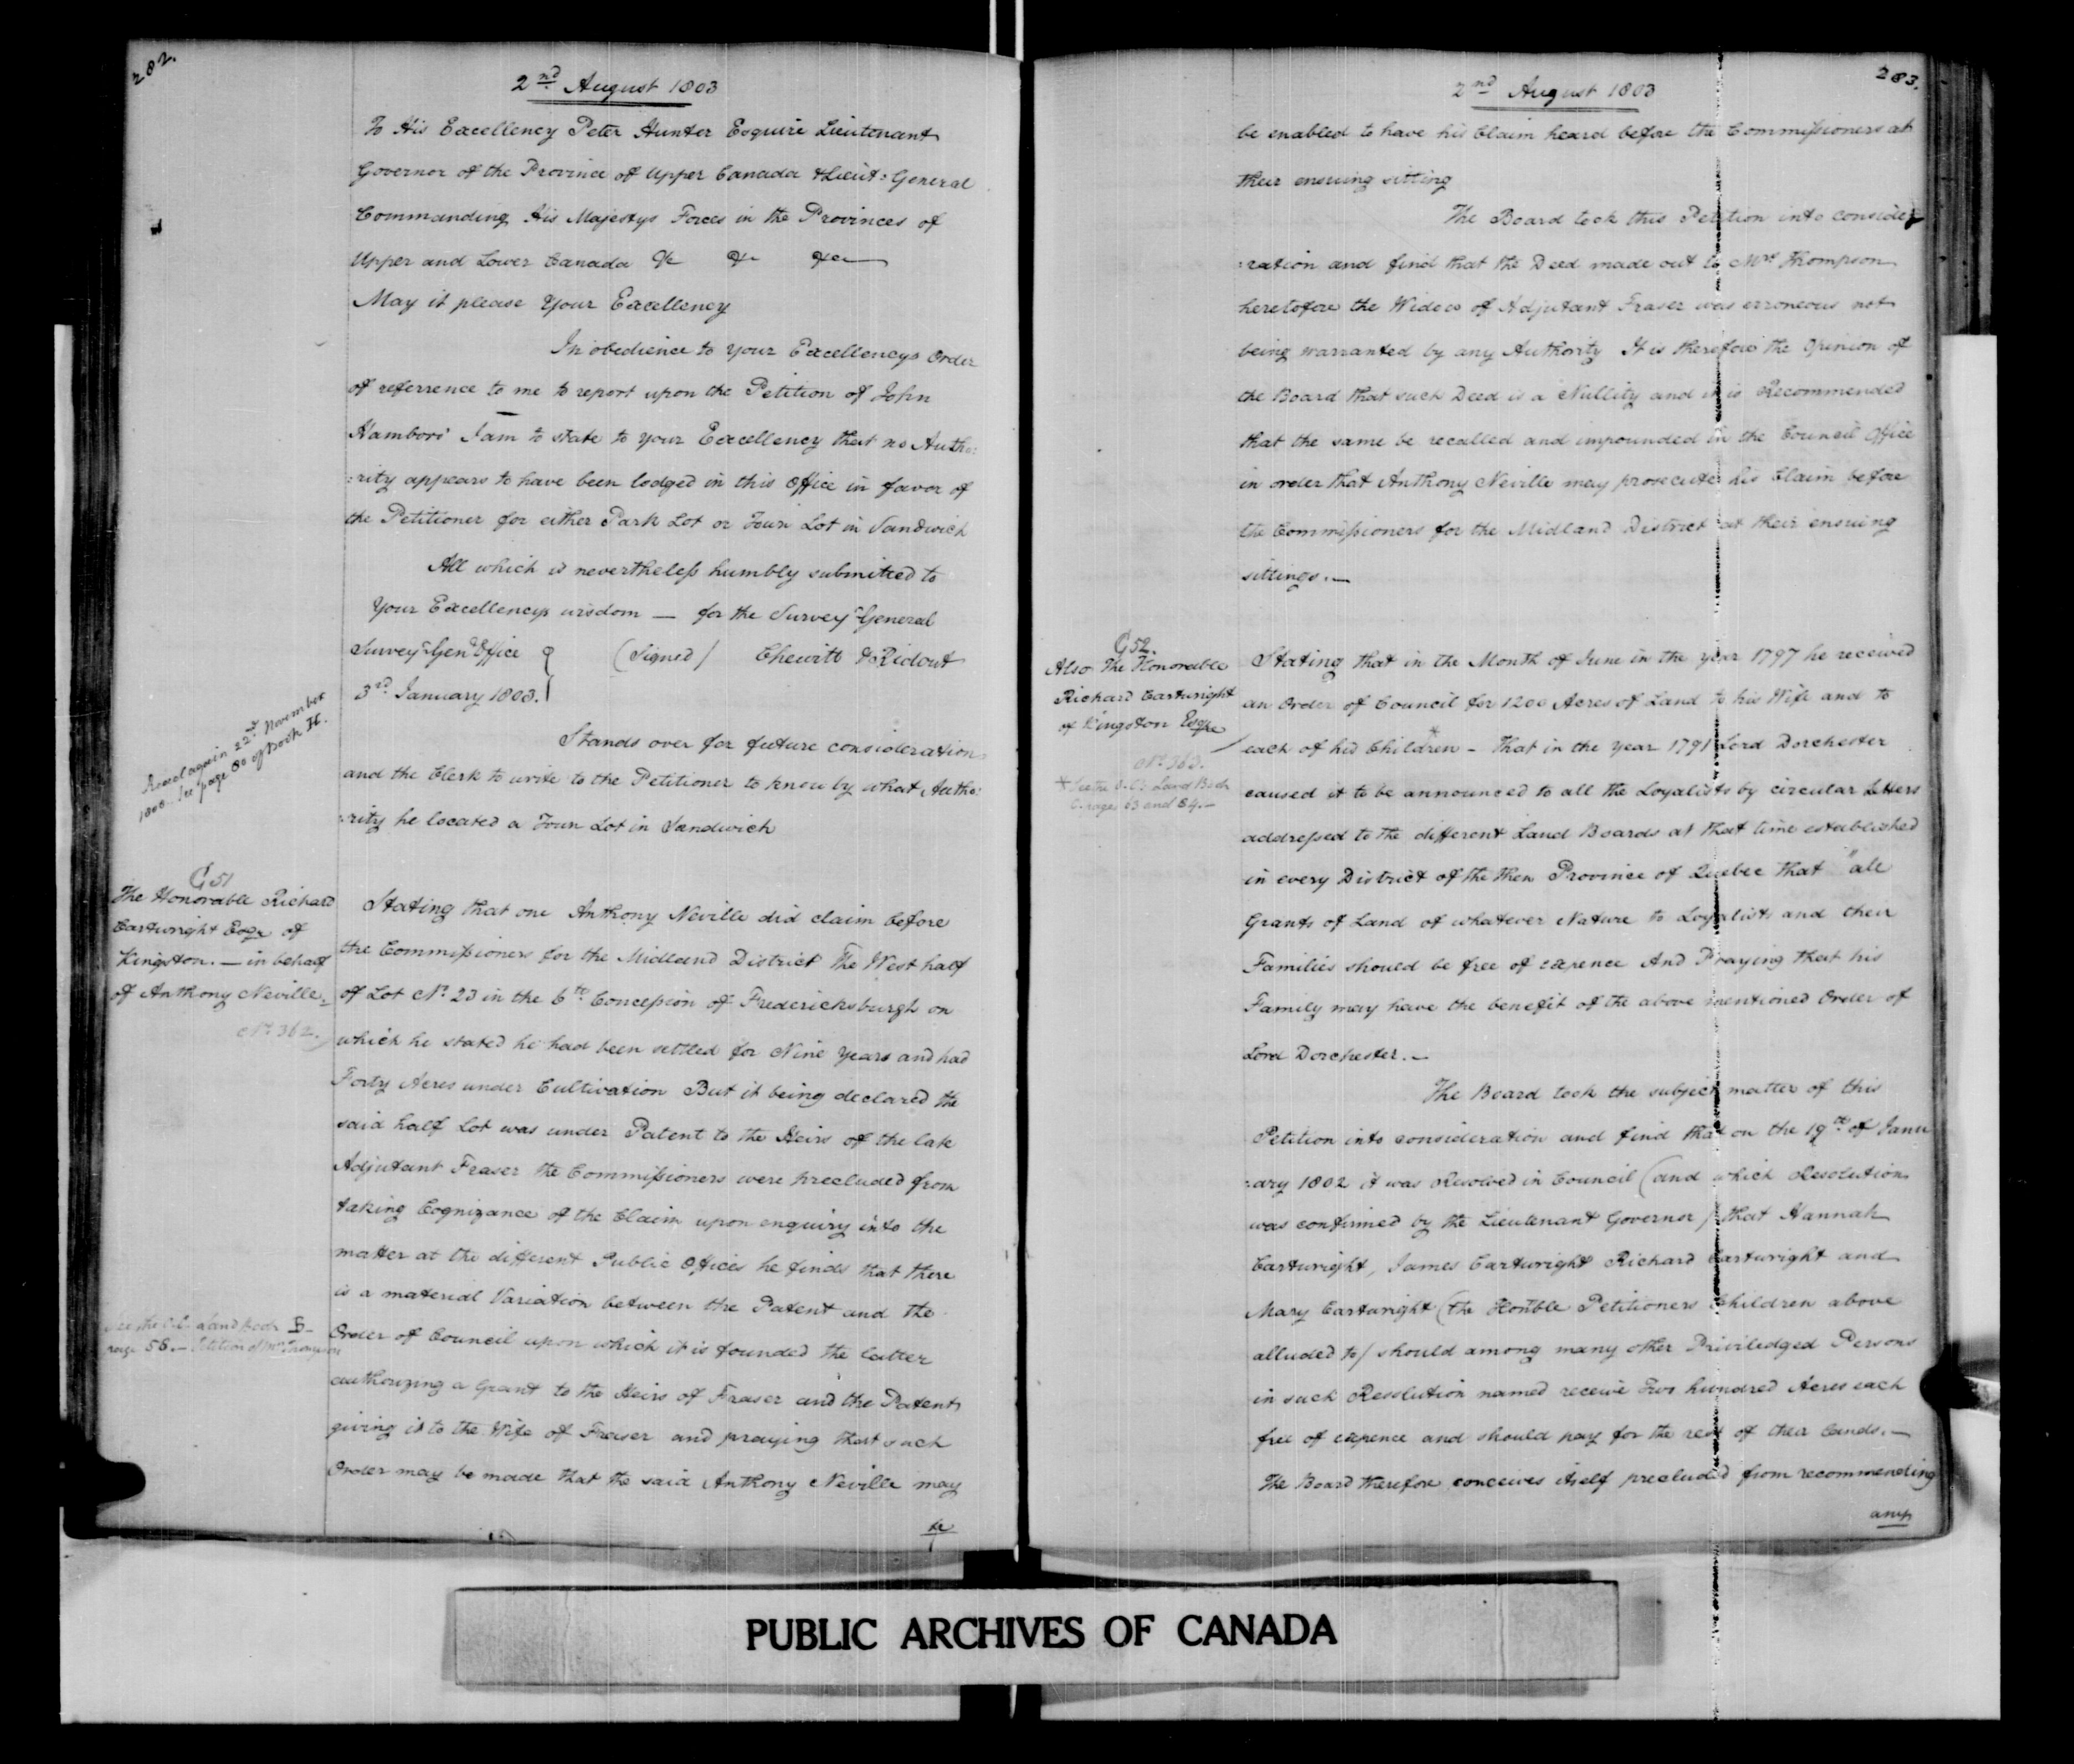 282.
2nd August 1803
To His Excellency Peter Hunter Esquire Lieutenant
Governor of the Province of Upper Canada & Lieut: General
Commanding His Majestys Forces in the Provinces of
Upper and Lower Canada &c &c &ca
May it please Your Excellency
In obedience to your Excellencys Order
of referrence to me to report upon the Petition of John
I am to state to your Excellency that no Autho:
:rity appears to have been lodged in this Office in favor of
the Petitioner for either Park Lot or Town Lot in Sandwich
All which is nevertheless humbly submitted to
Your Excellencys wisdom — for the Surveyr General
Surveyr Genl Office (Signed) Chewitt & Ridout
3rd January 1803.
Read again 22d November
1808 See page 80 of Book H.
Stands over for future consideration
and the Clerk to write to the Petitioner to know by what Autho:
:rity he located a Town Lot in Sandwich
G 51
The Honorable Richard
Cartwright Esqr of
Kingston. — in behalf
of Anthony Neville.
No 362.
Stating that one Anthony Neville did claim before
the Commissioners for the Midland District The West half
of Lot No 23 in the 6th Concession of Fredericksburgh on
which he stated he had been settled for Nine Years and had
Forty Acres under Cultivation But it being declared the
said half Lot was under Patent to the Heirs of the late
Adjutant Fraser the Commissioners were precluded from
taking Cognizance of the Claim upon enquiry into the
matter at the different Public Offices he finds that there
is a material Variation between the Patent and the
See the O.C. Land Book B
page 58. — Petition of Mrs Thompson
Order of Council upon which it is founded the latter
authorizing a Grant to the Heirs of Fraser and the Patent
giving it to the Wife of Fraser and praying that such
Order may be made that the said Anthony Neville may
be
283.
2nd August 1803
be enabled to have his Claim heard before the Commissioners at
their ensuing sitting
The Board took this Petition into conside
:ration and find that the Deed made out to Mrs Thompson
heretofore the Widow of Adjutant Fraser was erroneous not
being warranted by any Authority It is therefore the Opinion of
the Board that such Deed is a Nullity and it is Recommended
that the same be recalled and impounded in the Council Office
in order that Anthony Neville may prosecute his Claim before
the Commissioners for the Midland District at their ensuing
sittings. —
G 52.
Also The Honorable
Richard Cartwright
of Kingston Esqre
No 363.
* See the O.C. Land Book
C. pages 63 and 84. —
Stating that in the Month of June in the year 1797 he received
an Order of Council for 1200 Acres of Land to his Wife and to
each of his Children * — That in the year 1791 Lord Dorchester
caused it to be announced to all the Loyalists by circular Letters
addressed to the different Land Boards at that time established
in every District of the then Province of Quebec that "all
Grants of Land of whatever Nature to Loyalists and their
Families should be free of expence And Praying that his
Family may have the benefit of the above mentioned Order of
Lord Dorchester. —
The Board took the subject matter of this
Petition into consideration and find that on the 19th of Janu
:ary 1802 it was Resolved in Council (and which Resolution
was confirmed by the Lieutenant Governor) that Hannah
Cartwright, James Cartwright Richard Cartwright and
Mary Cartwright (the Honble Petitioners Children above
alluded to) should among many other Priviledged Persons
in such Resolution named receive Two hundred Acres each
free of expence and should pay for the rest of their lands. —
The Board therefore conceives itself precluded from recommending
any
PUBLIC ARCHIVES OF CANADA